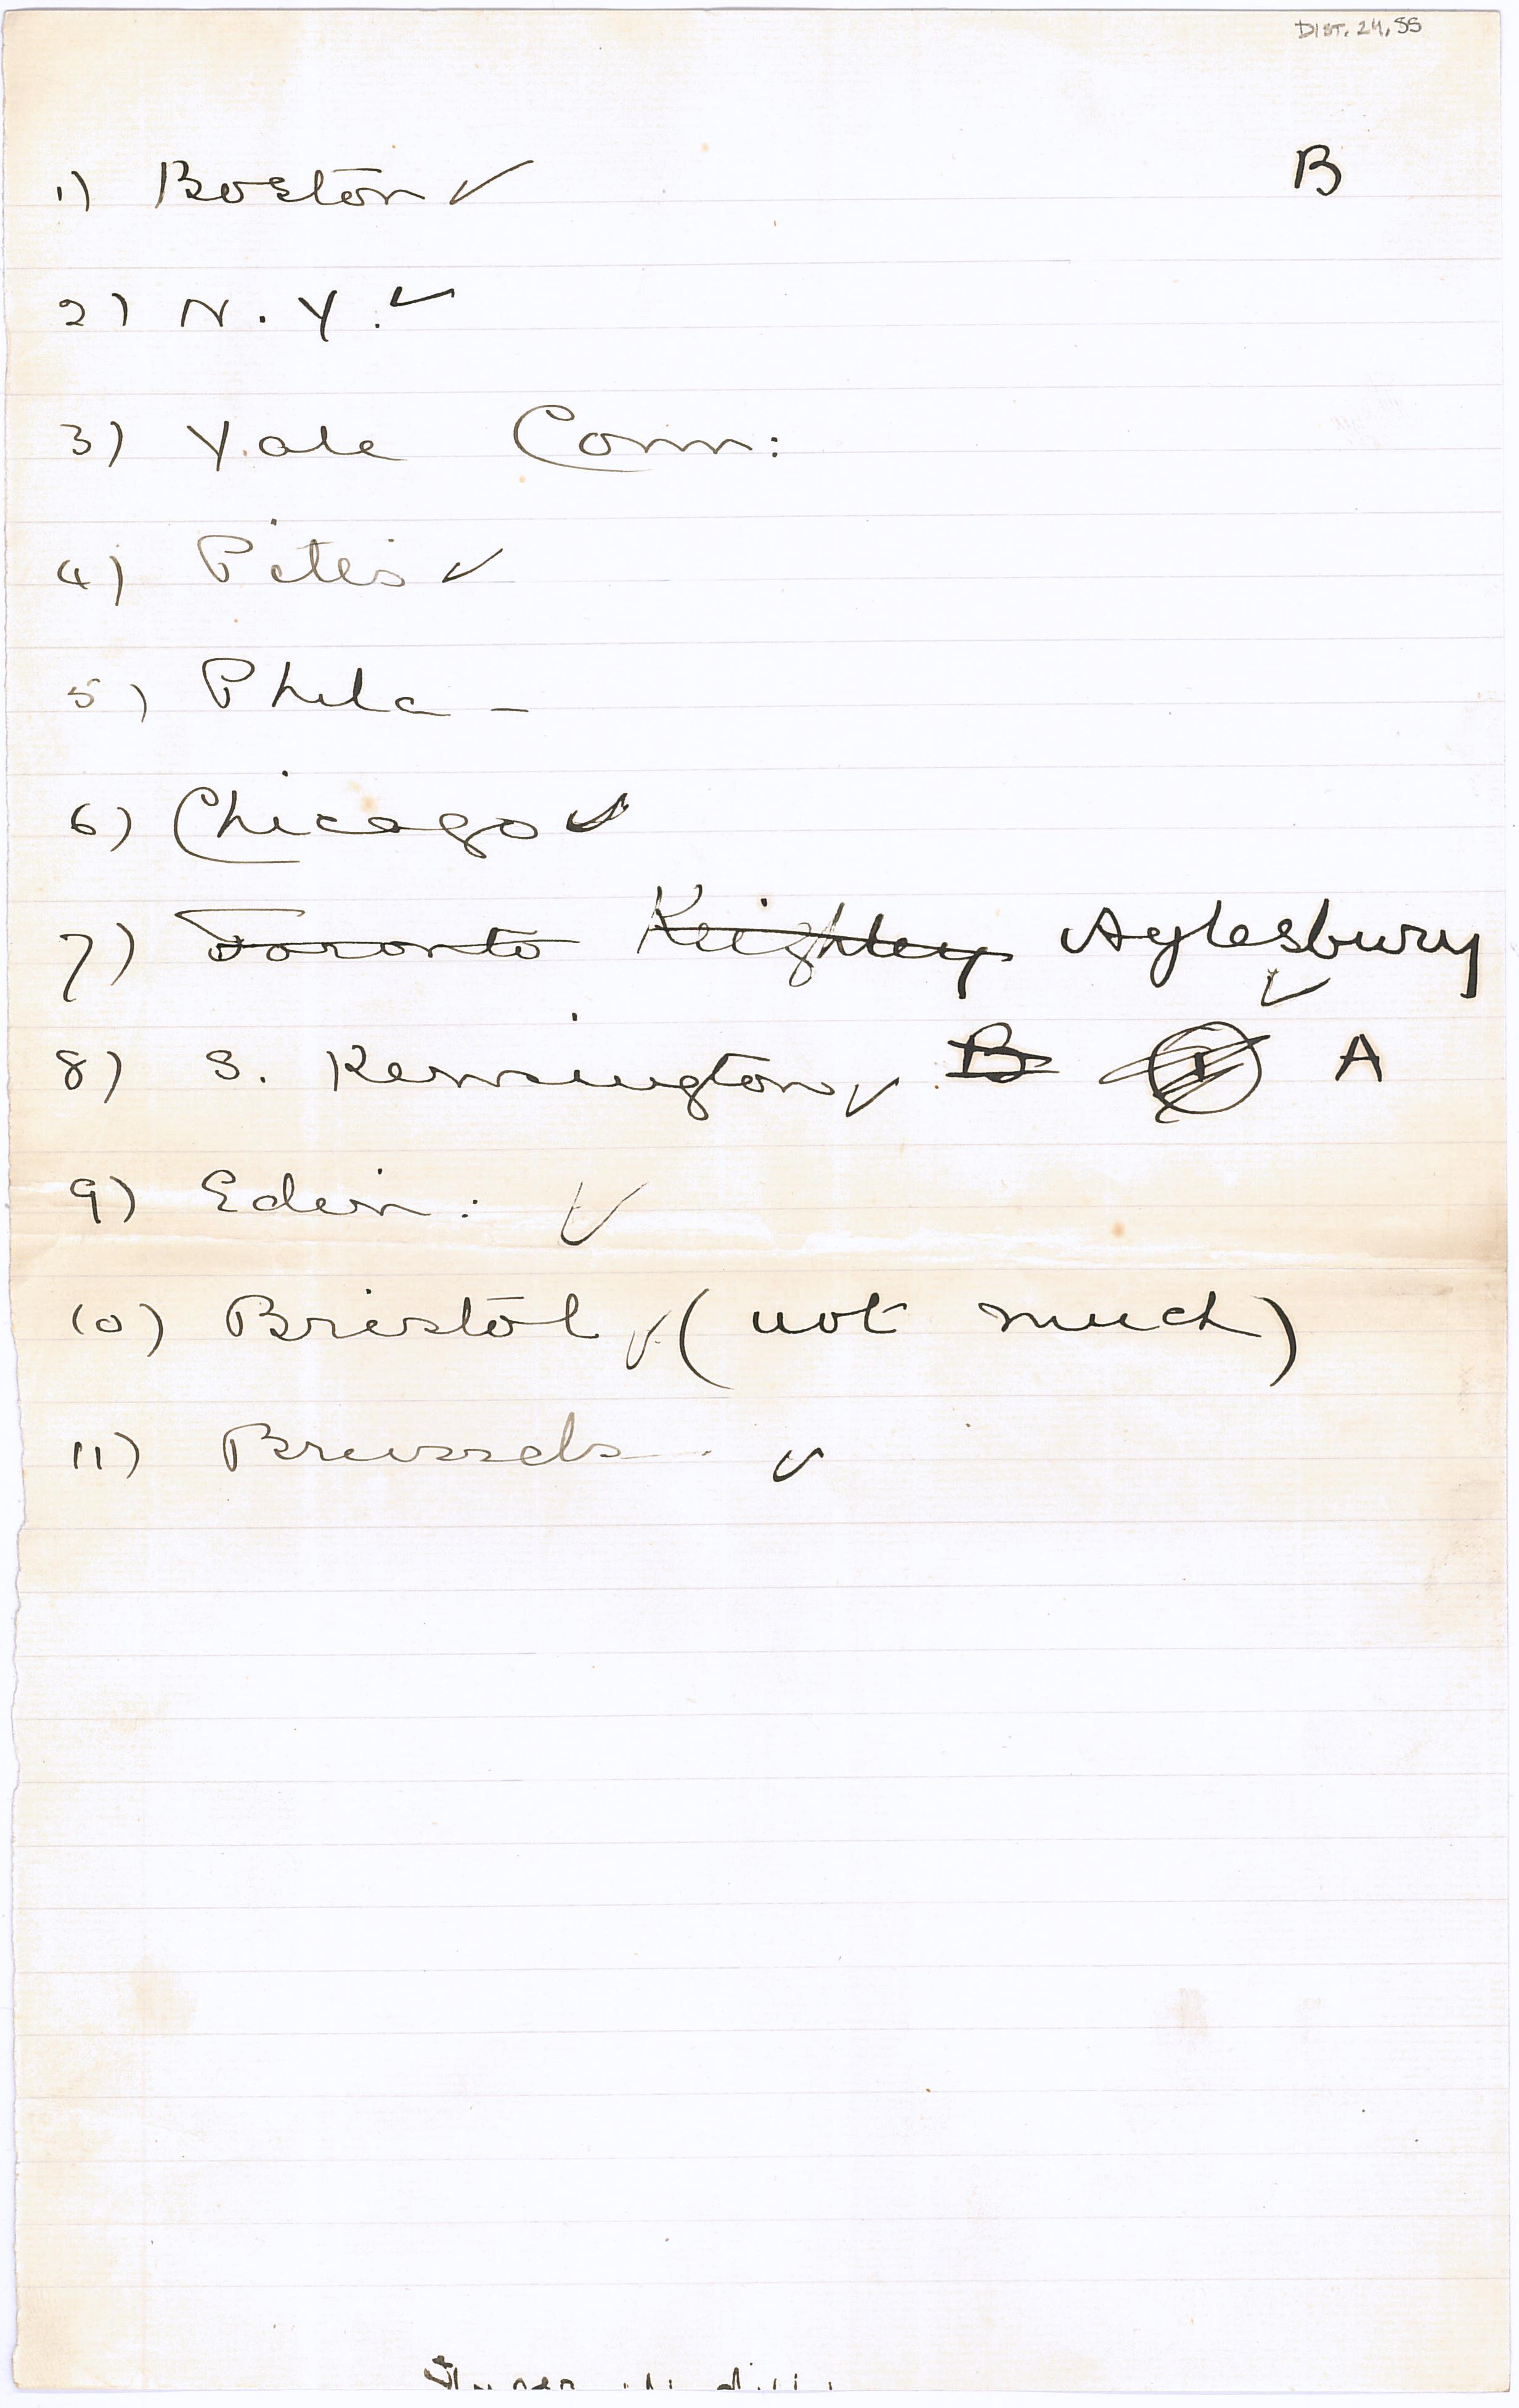 DIST. 24, 55
B
1) Boston ✓
2) N. Y. ✓
3) Yale Conn:
4) Pitts ✓
5) Phila -
6) Chicago ✓
7) Toronto Keighley Aylesbury ✓
8) S. Kensington ✓ B A
9) Edin: ✓
10) Bristol ✓ (not much)
11) Brussels. ✓